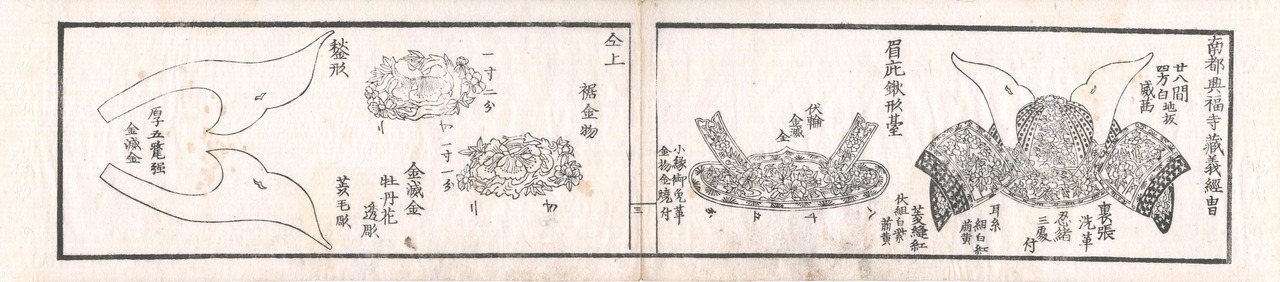 南都興福寺蔵義經冑
廿八間
四方白地板
威茜
裏張
洗革
忍緒
三處
付
耳糸
細白紅
萠黄
菱縫紅
伏組白紫
萠黄
眉庇鍬形臺
伏輪
金滅
金
小縁御免革
金物金焼付
三
仝上
裾金物
一寸二分
一寸一分
金滅金
牡丹花
透彫
菱毛彫
鍬形
厚五毫强
金滅金